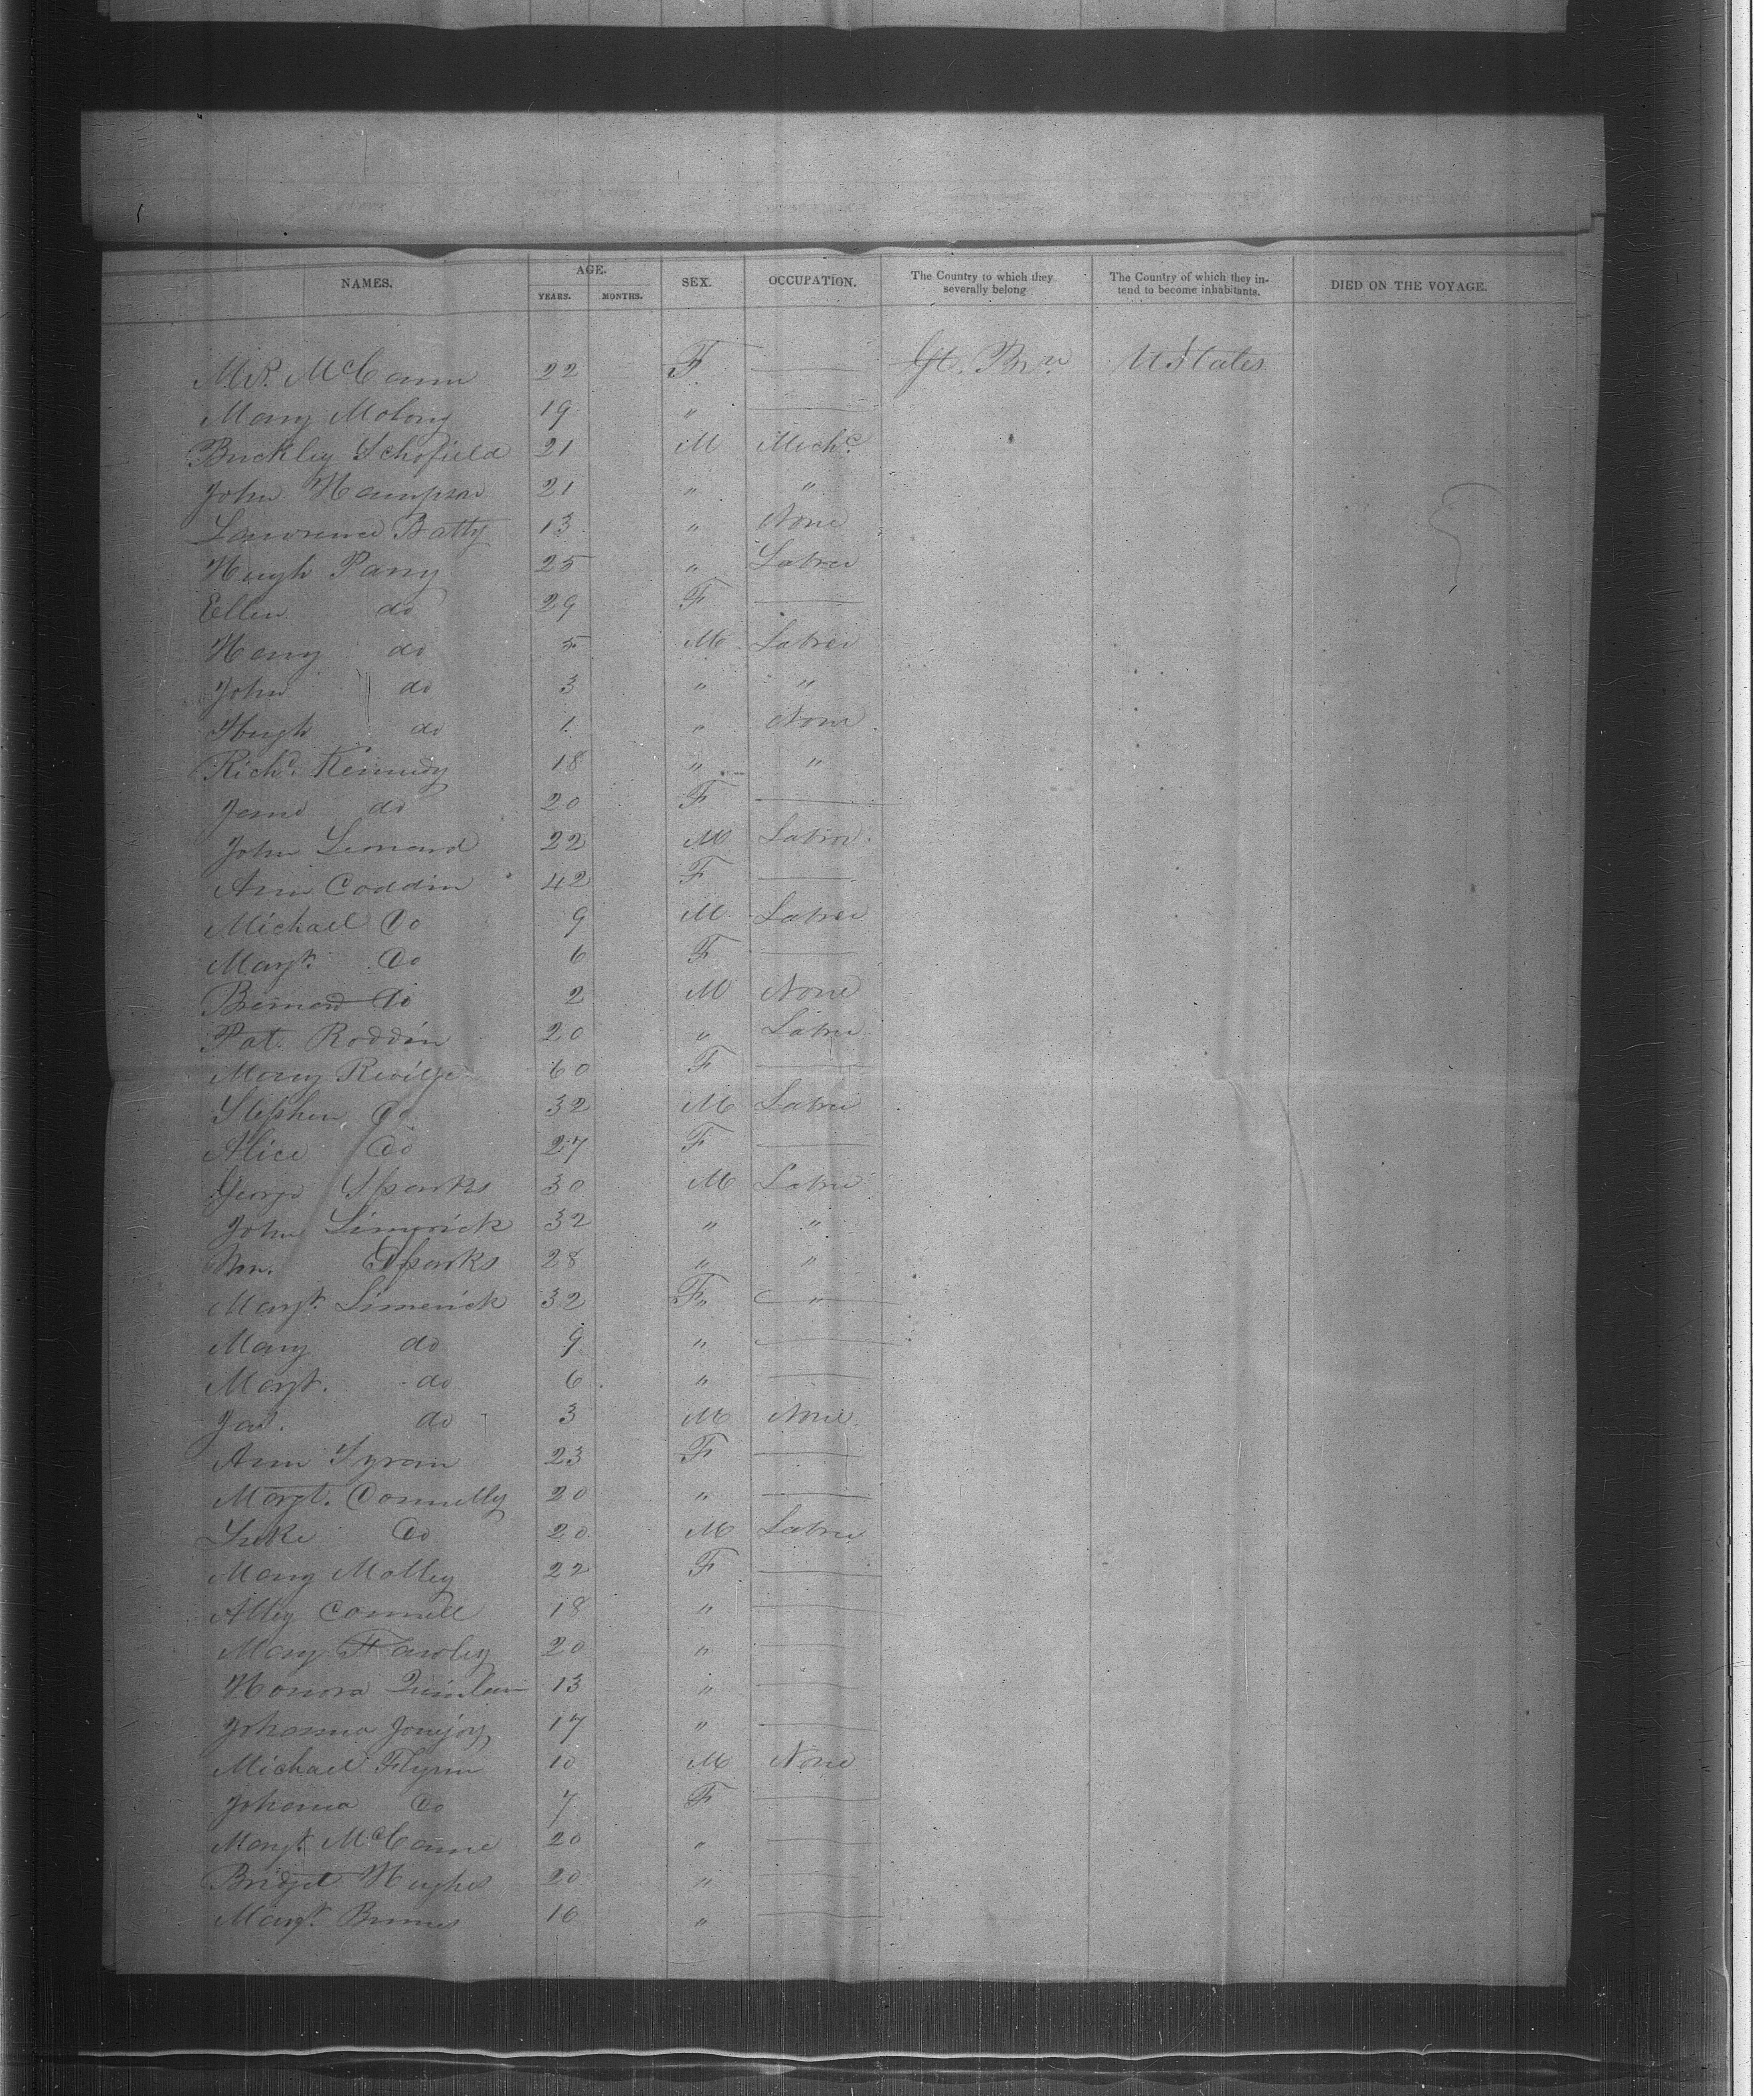 NAMES. AGE. YEARS. MONTHS. SEX. OCCUPATION. The Country to which they severally belong The Country of which they intend to become inhabitants. DIED ON THE VOYAGE.
Mrs. McCann 22 F — Gt. Brn. U States
Mary Molony 19 " —
Buckley Schofield 21 M Mechc.
John Hampson 21 " "
Lawrence Batty 13 " None
Hugh Parry 25 " Labrer
Ellen do 29 F —
Henry do 5 M Labrer
John do 3 " "
Hugh do 1 " None
Richd. Kennedy 18 " "
Jane do 20 F —
John Leonard 22 M Labrer
Ann Coddin 42 F —
Michael Do 9 M Labrer
Margt. Do 6 F —
Bernard Do 2 M None
Pat. Roddin 20 " Labrer
Mary 60 F —
Stephen Do 32 M Labrer
Alice Do 27 F —
George Sparks 30 M Labrer
John Limerick 32 " "
Wm. Sparks 28 " "
Margt. Limerick 32 F " "
Mary do 9 " —
Margt. do 6 " —
Jas. do 3 M None
Ann 23 F —
Margt. Connelly 20 " —
Luke Do 20 M Labrer
Mary Molley 22 F —
Alley Connell 18 " —
Mary Hawley 20 " —
Honora Quinlan 13 " —
Johanna 17 " —
Michael Flynn 10 M None
Johanna Do 7 F —
Margt. McCanne 20 " —
Bridget Hughes 20 " —
Margt. 16 " —